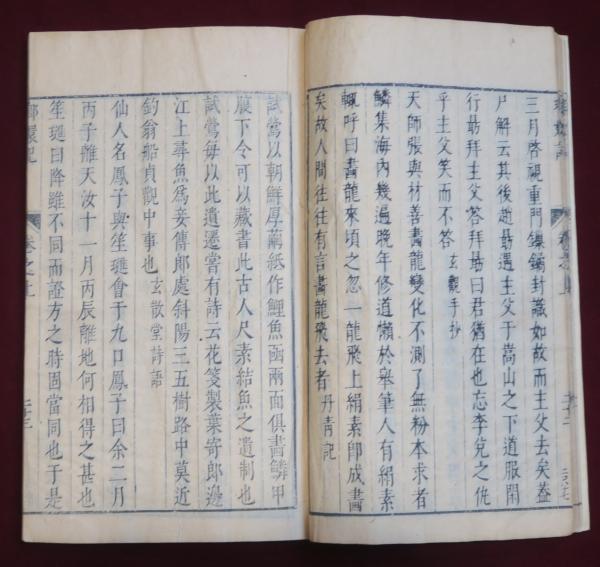 三月啓視重門鐍鐍封識如故而主父去矣葢
尸解云其後趙勗遇主父于嵩山之下道服閑
行勗拜主父答拜勗曰君猶在也忘李兌之仇
乎主父笑而不答 玄觀手抄
天師張與材善畫龍變化不測了無粉本求者
鱗集海內幾遍晚年修道懶於舉筆人有絹素
輒呼曰畫龍來頃之忽一龍飛上絹素即成畫
矣故人間往往有言畫龍飛去者 丹青記
試鶯以朝鮮厚繭紙作鯉魚函兩面俱畫鱗甲
腹下令可以藏書此古人尺素結魚之遺制也
試鶯每以此遺遷嘗有詩云花箋製葉寄郎邊
江上尋魚爲妾傳郎處斜陽三五樹路中莫近
釣翁船貞觀中事也 玄散堂詩話
仙人名鳳子與笙璡會于九口鳳子曰余二月
丙子離天汝十一月丙辰離地何相得之甚也
笙璡曰降雖不同而證方之時固當同也于是
瑯嬛記
卷之上
二十三